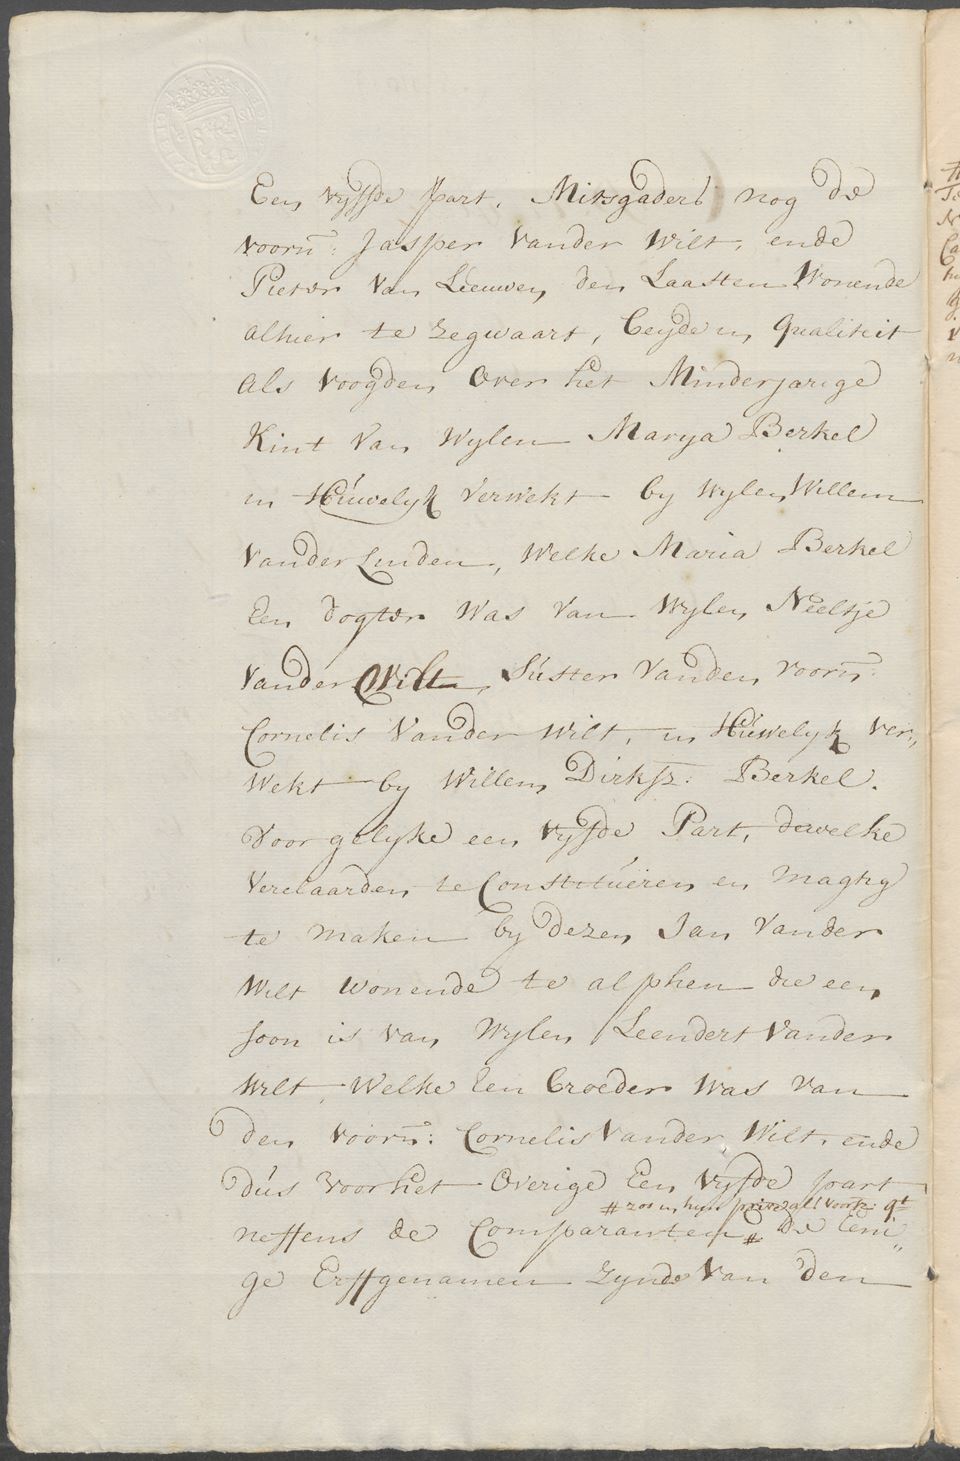 Een vyffde part, Mitsgaders nog de
voorn: Jasper vander Wilt, ende
Pieter van Leeuwen, den Laasten Wonende
alhier te Zegwaart, beyde in qualiteit
als voogden over het Minderjarige
Kint van Wylen Marya Berkel
in Húwelyk verwekt by wylen Willem
vander Linden, welke Maria Berkel
een dogter was van wylen Neeltje
vander Wilt, Súster vanden voorn:
Cornelis vander Wilt, in Húwelyk ver„
wekt by Willem Dirksz: Berkel.
voor gelyke een vyffde Part, dewelke
verclaarden te Constitúeren en magtig
te maken by dezen Jan vander
Wilt wonende te alphen die een
soon is van wylen Leendert vander
Wilt, welke een broeder was van
den voorn: Cornelis vander Wilt, ende
dús voor het overige een vyffde part
# zoo in hun privé als voorz: qt
neffens de Comparanten # de eeni„
ge Erffgenamen zynde van den